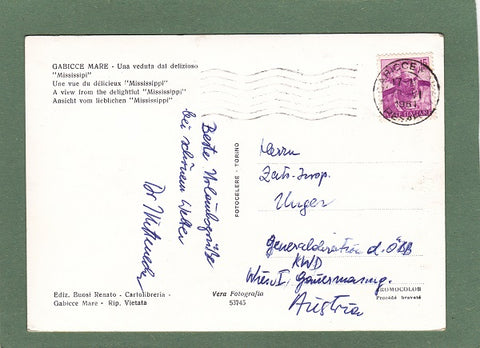 GABICCE MARE - Una veduta dal delizioso
"Mississipi"
Une vue du délicieux "Mississippi"
A view from the delightful "Mississippi"
Ansicht vom lieblichen "Mississippi"
Beste Urlaubsgrüße
bei schönem Wetter
Dr.
FOTOCELERE - TORINO
GABICCE
1961
Herrn
Zats-Insp.
Unger
Generaldirektion d. ÖBB
KWD
Wien I,
Austria
Ediz. Buosi Renato - Cartolibreria -
Gabicce Mare - Rip. Vietata
Vera Fotografia
53745
ROMOCOLOR
Procédé breveté